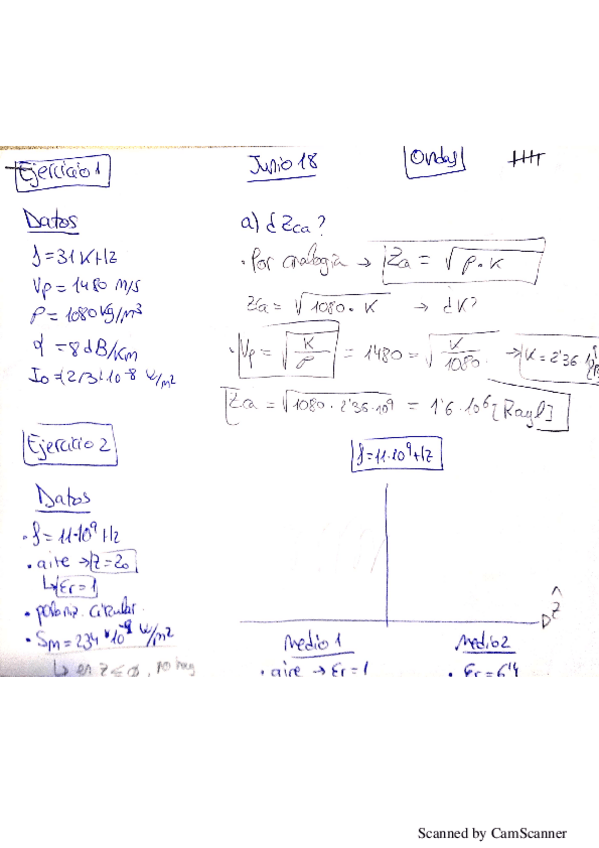 Ejercicio 1
Junio 18
Ondas
Datos
f = 31 KHz
Vp = 1480 m/s
ρ = 1080 kg/m³
α = 8 dB/Km
I₀ = (2/3)·10⁻⁸ W/m²
a) ¿Zca?
· Por analogía → Za = √ρ·K
Za = √1080·K → ¿K?
· Vp = √K/ρ = 1480 = √K/1080 → K = 2'36
Za = √1080·2'36·10⁹ = 1'6·10⁶ [Rayl]
Ejercicio 2
f = 11·10⁹ Hz
Datos
· f = 11·10⁹ Hz
· aire → Z = Z₀
↳ Er = 1
· polariz. circular.
· Sm = 234·10⁻⁸ W/m²
↳ en Z ≤ 0, no hay
ẑ
Medio 1
· aire → Er = 1
Medio 2
· Er = 6'4
Scanned by CamScanner